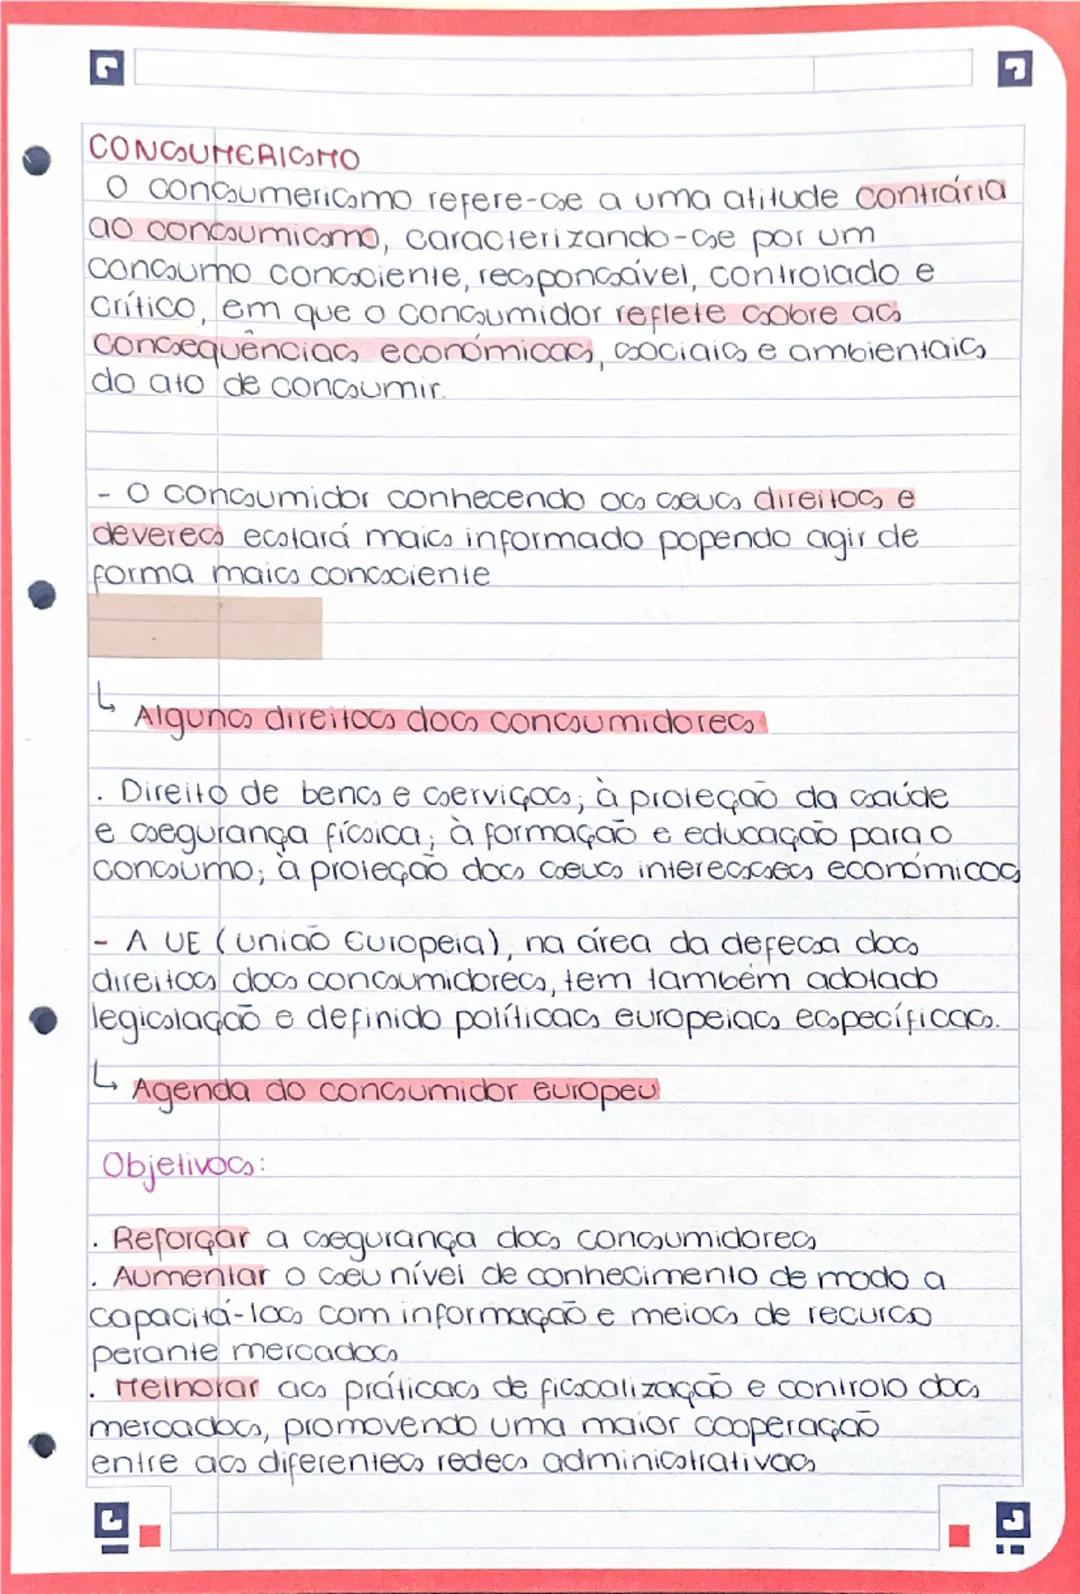 CONSUMERISMO
O consumerismo refere-se a uma atitude contrária
ao consumismo, caracterizando-se por um
consumo consciente, responsável, controlado e
crítico, em que o consumidor reflete sobre as
consequências económicas, sociais e ambientais
do ato de consumir.
- O consumidor conhecendo os seus direitos e
deveres estará mais informado popendo agir de
forma mais consciente
↳ Alguns direitos dos consumidores
. Direito de bens e serviços; à proteção da saúde
e segurança física; à formação e educação para o
consumo; à proteção dos seus interesses económicos
- A UE (União Europeia), na área da defesa dos
direitos dos consumidores, tem também adotado
legislação e definido políticas europeias específicas.
↳ Agenda do consumidor europeu
Objetivos:
. Reforçar a segurança dos consumidores
. Aumentar o seu nível de conhecimento de modo a
capacitá-los com informação e meios de recurso
perante mercados
. Melhorar as práticas de fiscalização e controlo dos
mercados, promovendo uma maior cooperação
entre as diferentes redes administrativas